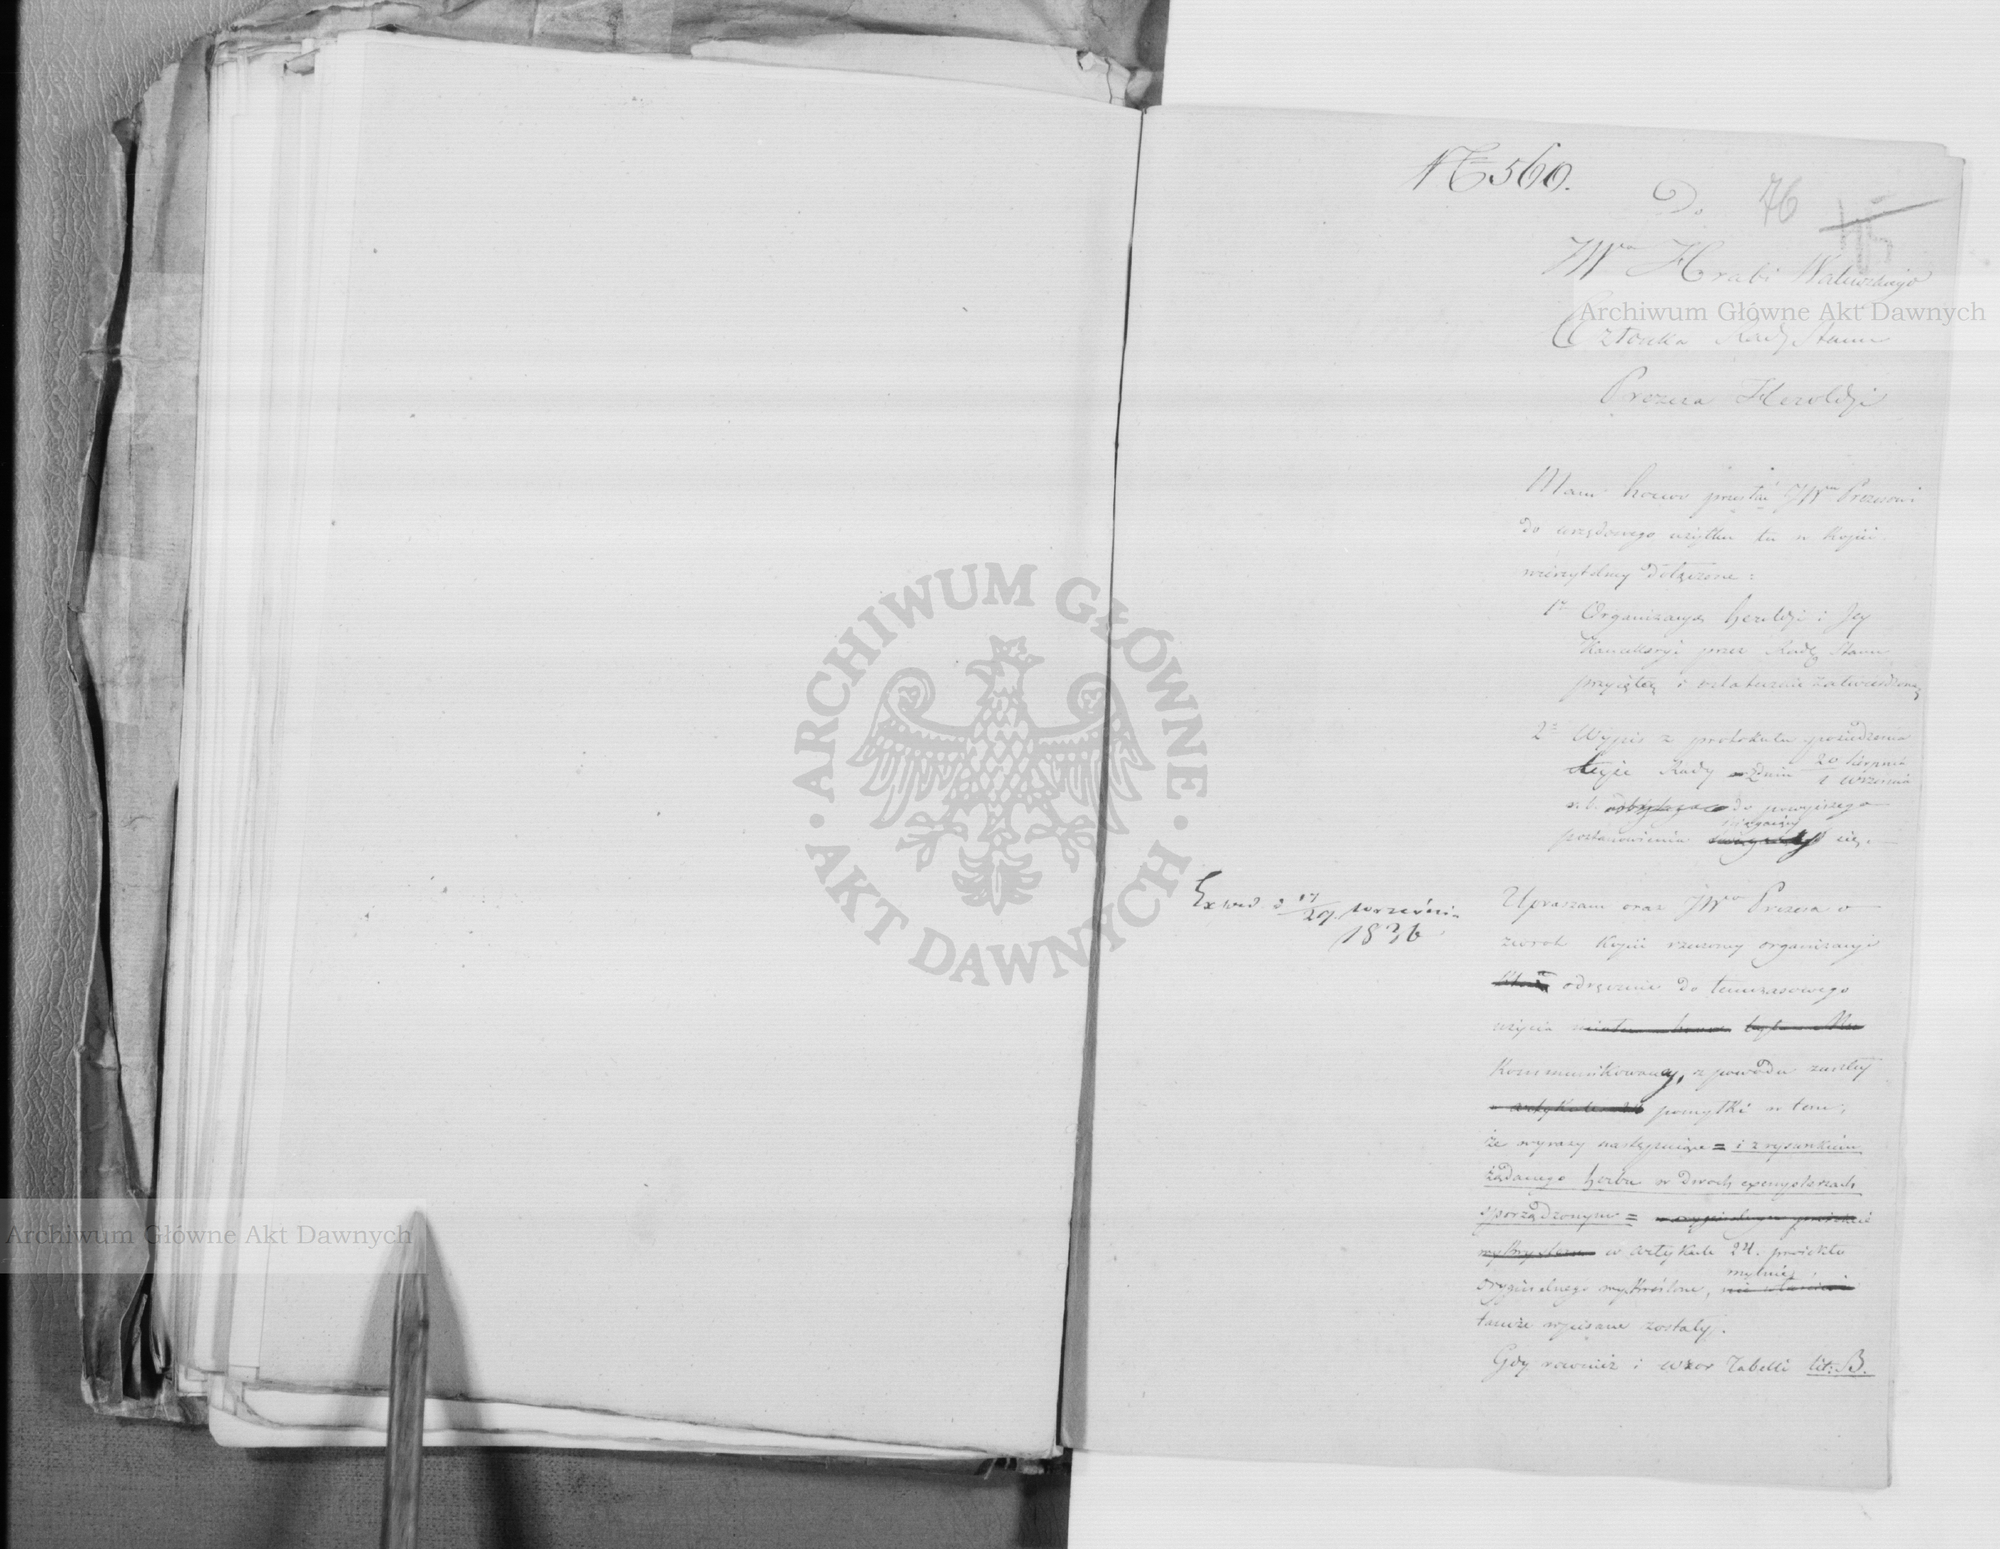 № 560.
Do 76
JWgo Hrabi Walewskiego
Członka Rady Stanu
Prezesa Heroldyi
Mam honor przesłać JWmu Prezesowi
do urzędowego użytku tu w Kopii
wierzytelney dołączone:
1º Organizacyą heroldyi i Jey
Kancellaryi przez Radę Stanu
przyjętą i ostatecznie zatwierdzoną
2º Wypis z protokułu posiedzenia
teyże Rady z dnia 20 sierpnia / 1 Września
r. b. do powyższego
postanowienia ściągaiący się.
Exped. d 17/29 września
1836
Upraszam oraz JWgo Prezesa o
zwrot Kopii rzeczoney organizacyi
odręcznie do tymczasowego
użycia
Kommunikowaney, z powodu zaszłey
pomyłki w tem,
że wyrazy następuiące = i z rysunkiem
żądanego herbu w dwoch exemplarzach
sporządzonym =
w artykule 24. proiektu
oryginalnego wykreślone, mylnie
tamże wpisane zostały.
Gdy rownież i wzor Tabelli lit: B.
Archiwum Główne Akt Dawnych
Archiwum Główne Akt Dawnych
ARCHIWUM GŁÓWNE · AKT DAWNYCH ·